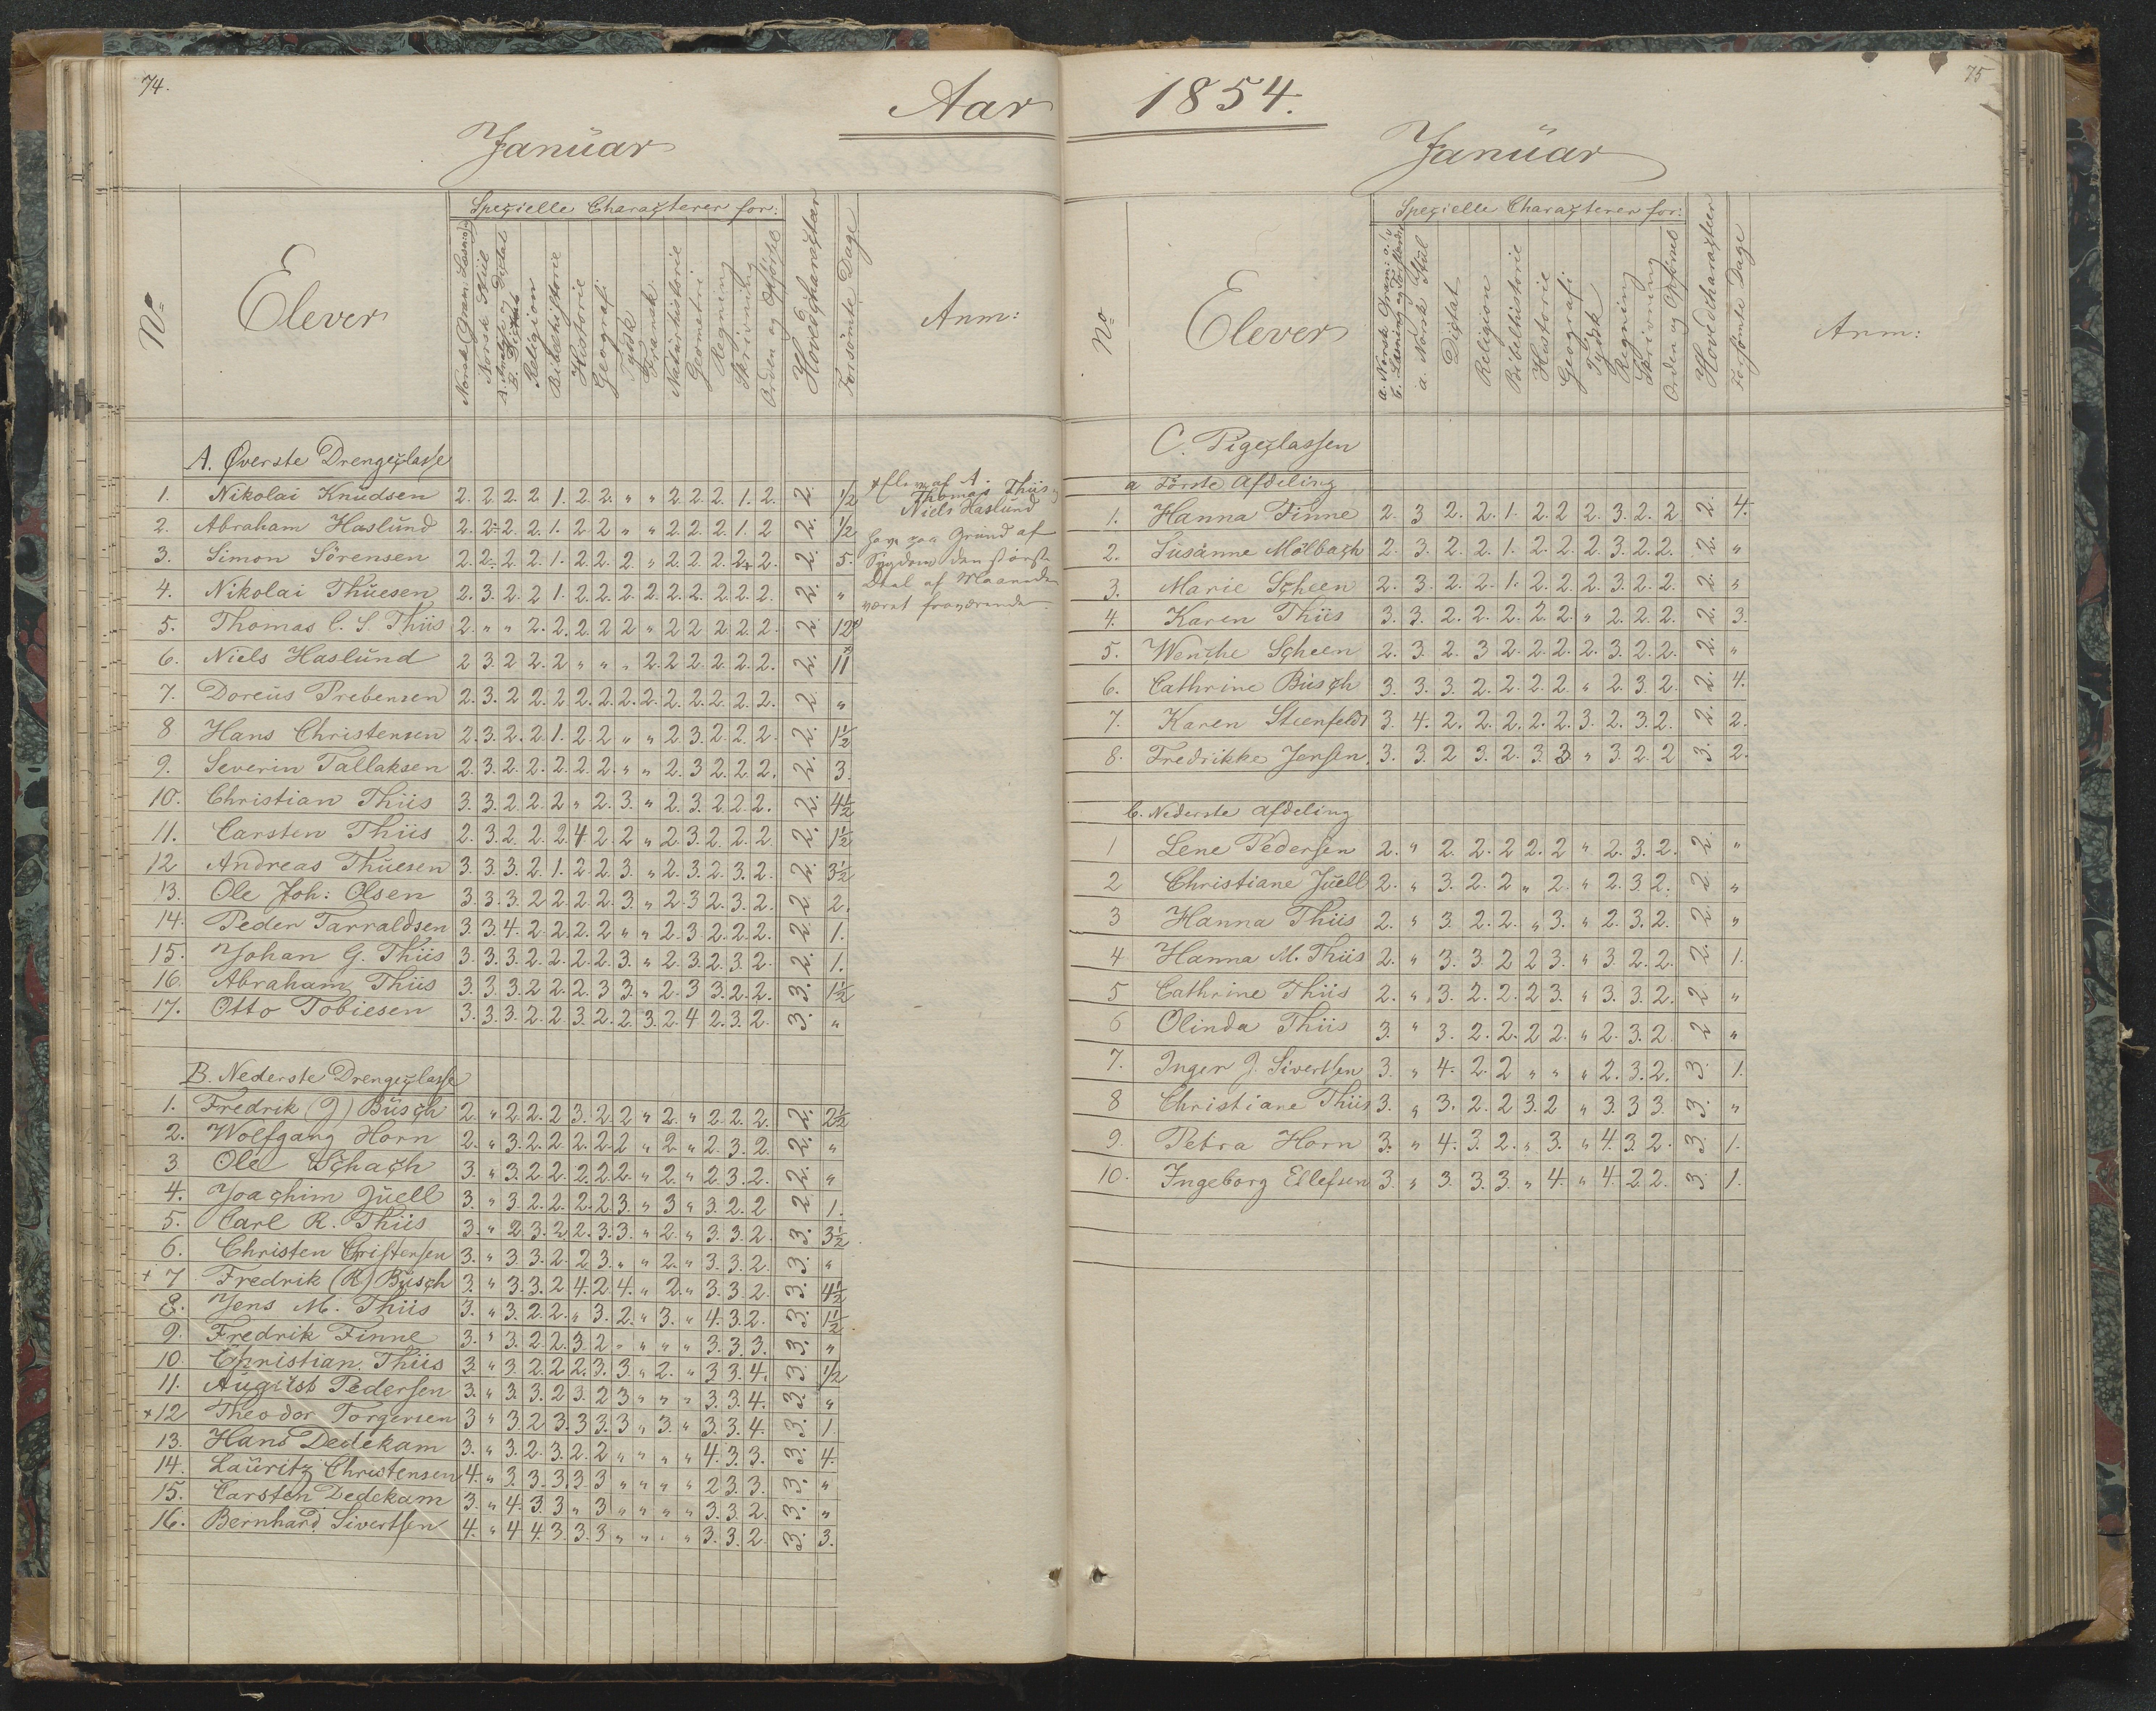 74.
Aar
Januar
Specielle Characterer for:
No
Elever
Norsk Gram. Læsn:
Norsk Stiil
A. Analyse og Dictat
B. Dictat
Religion
Bibelhistorie
Historie
Geografi
Tydsk
Fransk
Naturhistorie
Geometri
Regning
Skrivning
Orden og Opførsel
Hovedcharacter
Forsömte Dage
Anm:
A. Øverste Drengeclasse
1. Nikolai Knudsen 2. 2. 2. 2 1. 2. 2. " " 2. 2. 2. 1. 2. 2. 1/2
2. Abraham Haslund 2. 2- 2. 2. 1. 2 2 " " 2. 2. 2. 1. 2 2. 1/2
3. Simon Sörensen 2. 2- 2. 2. 1. 2. 2. 2. " 2. 2. 2. 2+ 2. 2. 5.
4. Nikolai Thuesen 2. 3. 2. 2 1. 2. 2. 2. 2. 2. 2. 2. 2. 2. 2. "
5. Thomas C. S. Thiis 2. " " 2. 2. 2. 2 2 " 2 2 2. 2. 2. 2. 12x
6. Niels Haslund 2 3. 2 2. 2 " " " 2. 2. 2. 2. 2. 2. 2. 11x
7. Doreus Prebensen 2. 3. 2 2. 2 2. 2. 2. 2. 2. 2. 2. 2. 2. 2. "
8 Hans Christensen 2. 3. 2. 2. 1. 2 2 " " 2. 3. 2. 2. 2. 2. 1½
9. Severin Tallaksen 2. 3. 2. 2. 2. 2. 2. " " 2. 3 2. 2. 2. 2. 3.
10. Christian Thiis 3. 3. 2. 2. 2 " 2. 3. " 2. 3. 2. 2. 2. 2. 4½
11. Carsten Thiis 2. 3. 2 2. 2. 4 2. 2 " 2. 3. 2. 2. 2 2. 1½
12 Andreas Thuesen 3. 3. 3. 2. 1. 2. 2 3. " 2. 3. 2. 3. 2. 2. 3½
13. Ole Joh: Olsen 3. 3. 3. 2 2. 2. 2. 3. " 2. 3 2. 3. 2. 2 2.
14. Peder Tarraldsen 3. 3 4. 2. 2. 2. 2 " " 2. 3. 2. 2. 2. 2 1.
15. Johan G. Thiis 3. 3. 3. 2. 2. 2. 2. 3. " 2. 3. 2. 3. 2. 2. 1.
16. Abraham Thiis 3. 3. 3. 2 2. 2. 3 3. " 2. 3 3. 2. 2. 3. 1½
17. Otto Tobiesen 3. 3. 3. 2. 2 3. 2. 2. 3. 2. 4 2. 3. 2. 3. "
B. Nederste Drengeclasse
1. Fredrik (J) Busch 2. " 2. 2. 2 3. 2. 2 " 2. " 2. 2. 2. 2. 2½
2. Wolfgang Horn 2. " 3. 2. 2. 2. 2. 2 " 2. " 2. 3. 2. 2. "
3 Ole Schach 3. " 3. 2 2. 2. 2. 2. " 2. " 2. 3. 2. 2. "
4. Joachim Juell 3. " 3. 2. 2. 2. 2. 3. " 3 " 3. 2. 2 2 1.
5. Carl R. Thiis 3. " 2 3. 2. 2. 3. 3. " 2. " 3. 3. 2. 3. 3½
6. Christen Christensen 3. " 3 3. 2. 2 3. " " 2. " 3. 3. 2. 3. "
+ 7 Fredrik (R) Busch 3. " 3. 3. 2 4. 2. 4. " 2. " 3. 3. 2. 3. 4½
8. Jens M. Thiis 3. " 3. 2. 2. " 3. 2. " 3. " 4. 3. 2. 3. 1½
9. Fredrik Finne 3. " 3. 2. 2. 3. 2 " " " " 3. 3. 3. 3. "
10. Christian Thiis 3. " 3 2. 2. 2. 3. 3. " 2. " 3 3. 4. 3 1/2
11. August Pedersen 3. " 3. 3. 2. 3. 2 3 " " " 3. 3. 4. 3. "
+12 Theodor Torgersen 3 " 3. 2 3. 3. 3. 3 " 3. " 3. 3. 4. 3. 1.
13. Hans Dedekam 3. " 3. 2. 3. 2. 2 " " " " 4. 3. 3. 3. 4.
14. Lauritz Christensen 4. " 3. 3. 3. 3. 3 " " " " 2 3. 3. 3. "
15. Carsten Dedekam 3. " 4. 3. 3 " 3 " " " " 3. 3. 2. 3. "
16. Bernhard Sivertsen 4. " 4 4. 3. 3. 3 " " " " 3. 3. 2. 3. 3.
af A.
Thomas Thiis
Niels Haslund
paa Grund af
Sygdom den største
Deel af Maaneden
været fraværende.
75
1854.
Januar
Specielle Characterer for:
No
Elever
a. Norsk Gram:
b. Læsning og
a. Norsk Stiil
Dictat
Religion
Bibelhistorie
Historie
Geografi
Tydsk
Regning
Skrivning
Orden og Opførsel
Hovedcharacter
Forsømte Dage
Anm:
C. Pigeclassen
a Første Afdeling
1. Hanna Finne 2. 3 2. 2. 1. 2. 2 2. 3. 2. 2 2. 4.
2. Susanne Mölbach 2. 3. 2. 2. 1. 2. 2. 2. 3. 2. 2. 2. "
3. Marie Scheen 2. 3. 2. 2. 1. 2. 2. 2. 3. 2. 2. 2. "
4. Karen Thiis 3. 3. 2. 2. 2. 2. 2. " 2. 2. 2. 2. 3.
5. Wenche Scheen 2. 3. 2. 3 2. 2. 2. 2. 3. 2. 2. 2. "
6. Cathrine Busch 3. 3. 3. 2. 2. 2. 2. " 2. 3. 2. 2. 4.
7. Karen Steenfeldt 3. 4. 2. 2. 2. 2. 2. 3. 2. 3. 2. 2. 2.
8. Fredrikke Jensen. 3. 3. 2 3. 2. 3. 3. " 3. 2. 2 3. 2.
b. Nederste Afdeling
1 Lene Pedersen 2. " 2. 2. 2 2. 2 " 2. 3. 2. 2. "
2 Christiane Juell 2. " 3. 2. 2 " 2. " 2. 3 2. 2. "
3 Hanna Thiis 2. " 3. 2. 2. " 3. " 2. 3. 2. 2. "
4 Hanna M. Thiis 2. " 3. 3. 2 2 3. " 3. 2. 2. 2. 1.
5 Cathrine Thiis 2. " 3. 2. 2. 2 3. " 3. 3. 2. 2 "
6 Olinda Thiis 3. " 3. 2. 2. 2 2. " 2. 3. 2. 2 "
7. Inger J. Sivertsen 3. " 4. 2. 2 " " " 2. 3. 2. 3. 1.
8 Christiane Thiis 3. " 3. 2. 2 3. 2 " 3. 3 3. 3. "
9. Petra Horn 3. " 4. 3. 2. " 3. " 4. 3. 2. 3. 1.
10. Ingeborg Ellefsen 3. " 3. 3. 3. " 4. " 4. 2. 2. 3. 1.